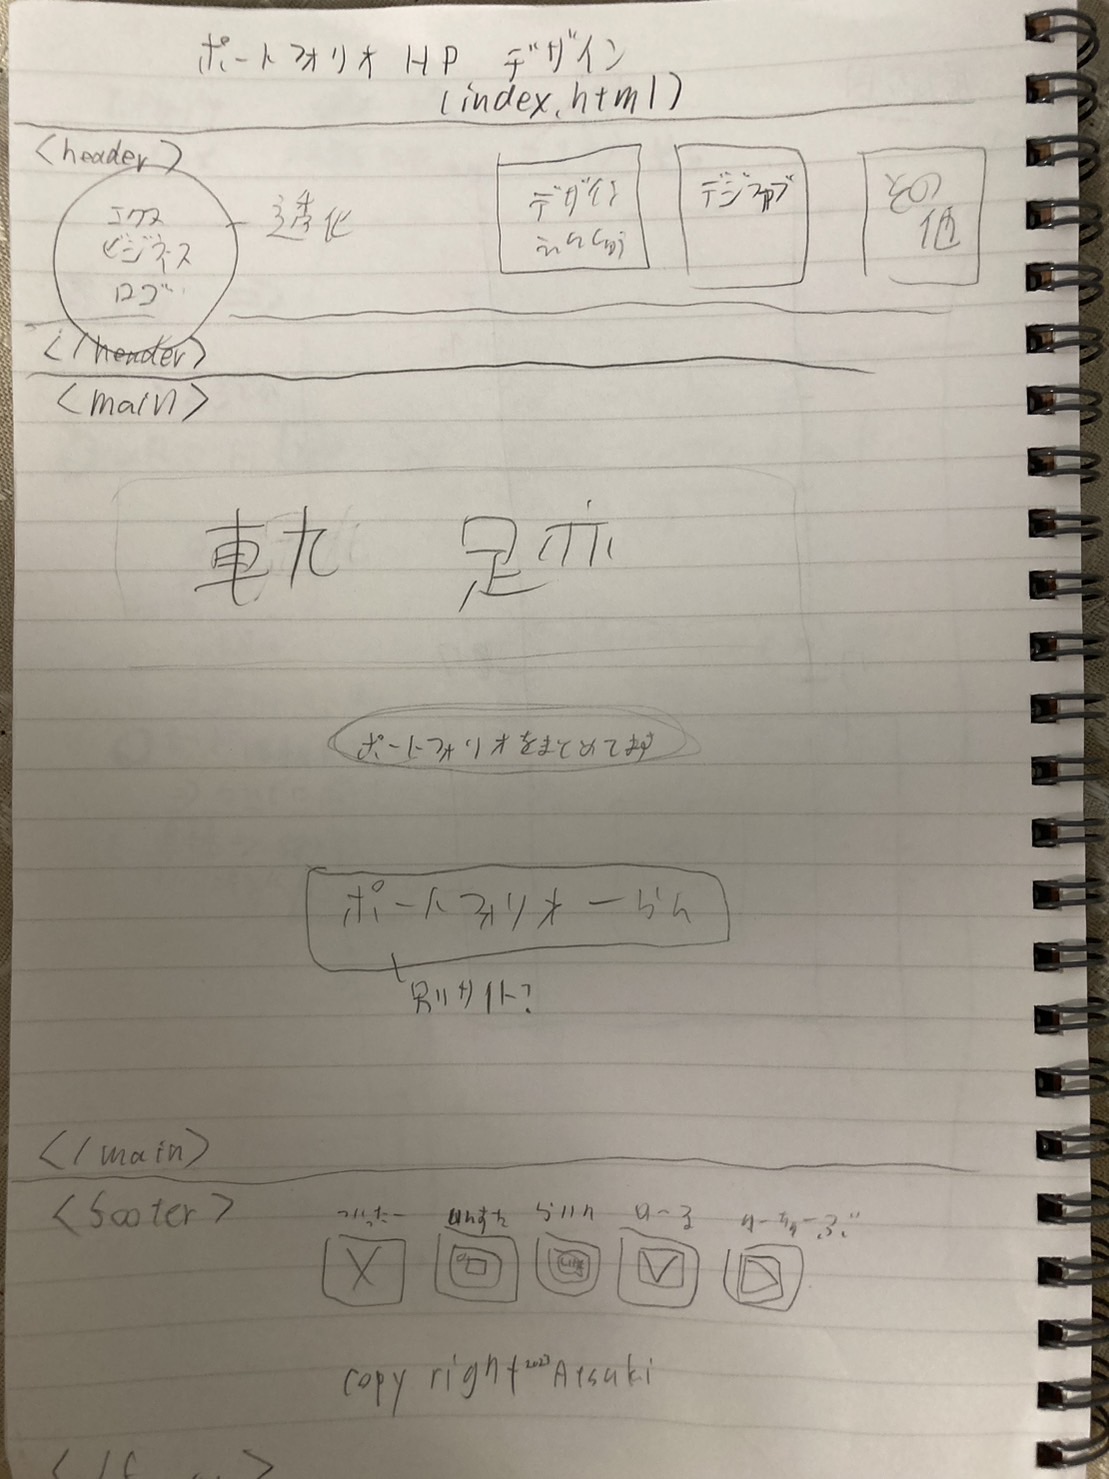 ポートフォリオ HP デザイン
(index.html)
<header>
エクス
ビジネス
ロゴ
透化
デザイン
えんしゅう
デジファブ
その
他
</header>
<main>
軌 跡
ポートフォリオをまとめてます
ポートフォリオ一らん
別サイト?
</main>
<footer>
ついったー
いんすた
らいん
めーる
ゆーちゅーぶ
X
LINE
copy right 2023 Atsuki